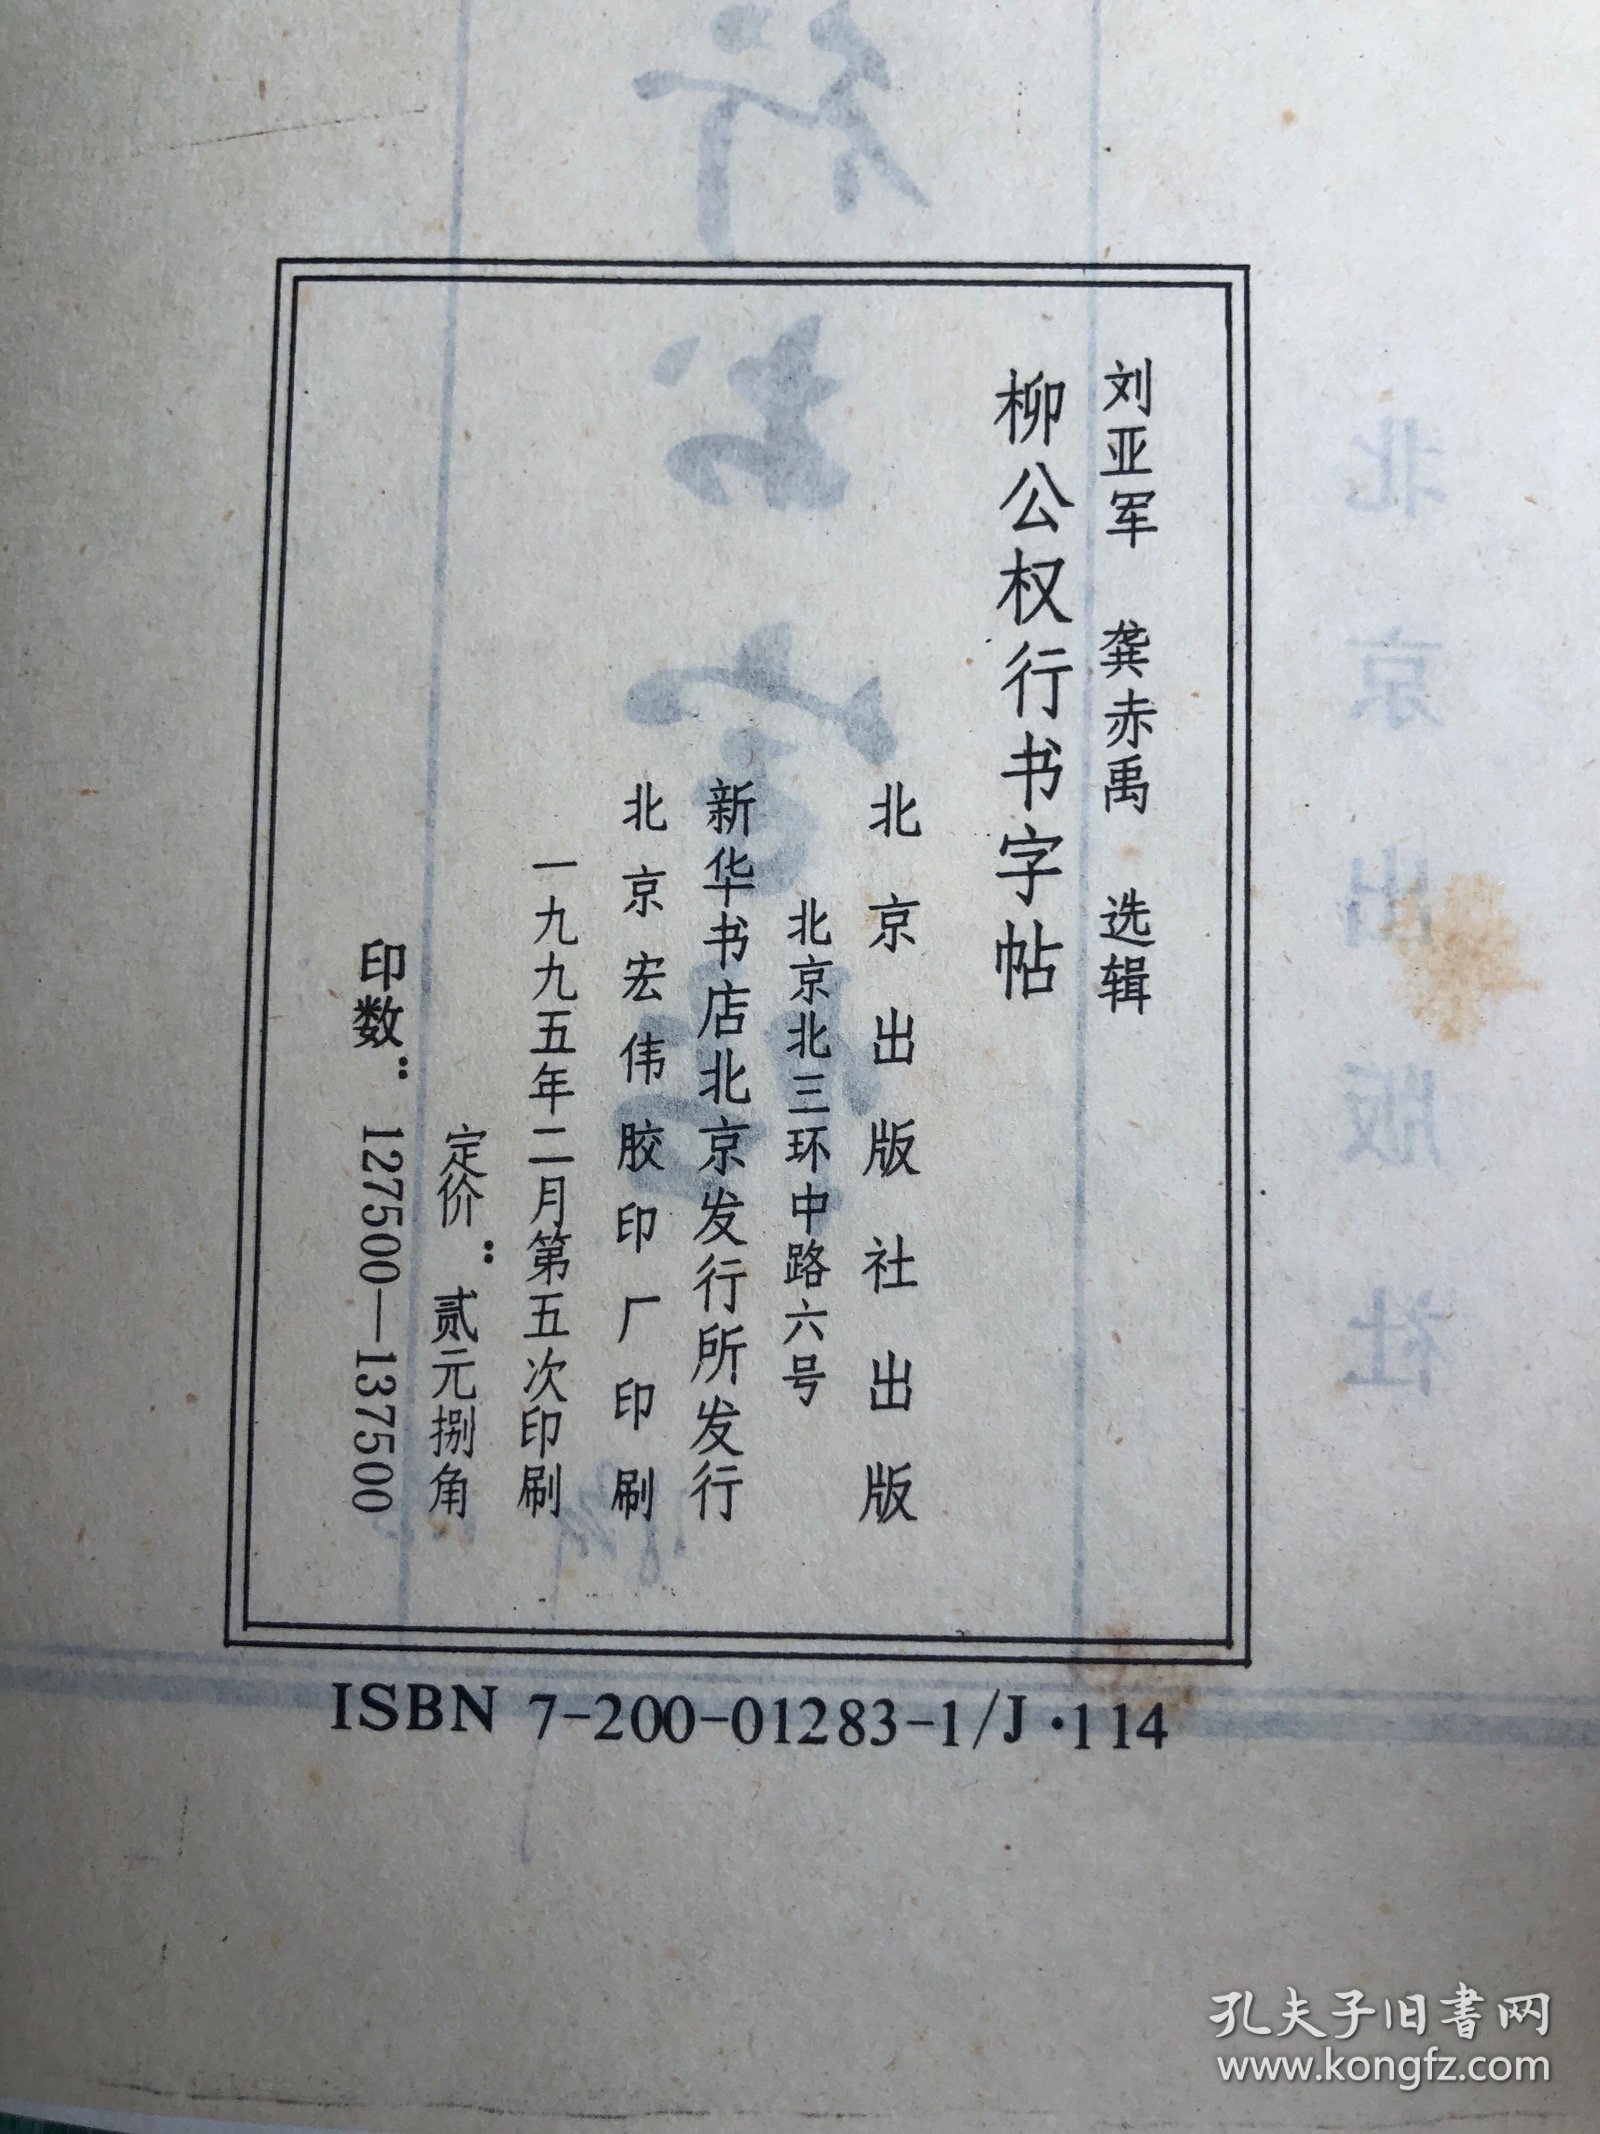 刘亚军 龚赤禹 选辑
柳公权行书字帖
北京出版社出版
北京北三环中路六号
新华书店北京发行所发行
北京宏伟胶印厂印刷
一九九五年二月第五次印刷
定价：贰元捌角
印数：127500—137500
ISBN 7-200-01283-1/J·114
北京出版社
孔夫子旧书网
www.kongfz.com